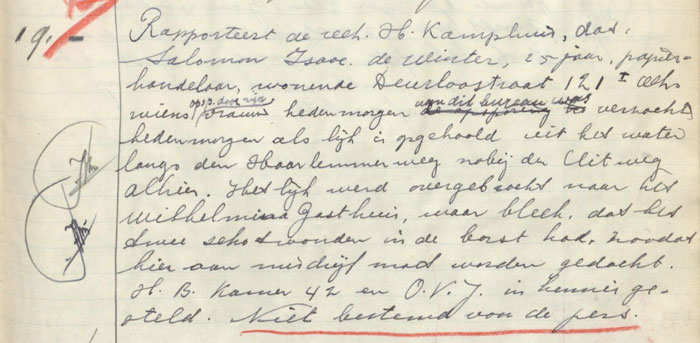 19.- Rapporteert de rech. H. Kamphuis, dat
Salomon Isaac de Winter, 25 jaar, papier-
handelaar, wonende Deurloostraat 121 I alh
wiens opsp. door zijn vrouw hedenmorgen aan dit bureau was verzocht
hedenmorgen als lijk is opgehaald uit het water
langs den Haarlemmerweg nabij den Uitweg
alhier. Het lijk werd overgebracht naar het
Wilhelmina Gasthuis, waar bleek, dat het
twee schotwonden in de borst had, zoodat
hier aan misdrijf moet worden gedacht.
H. B. Kamer 42 en O.V.J. in kennis ge-
steld. Niet bestemd voor de pers.